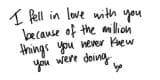 I fell in love with you
because of the million
things you never knew
you were doing